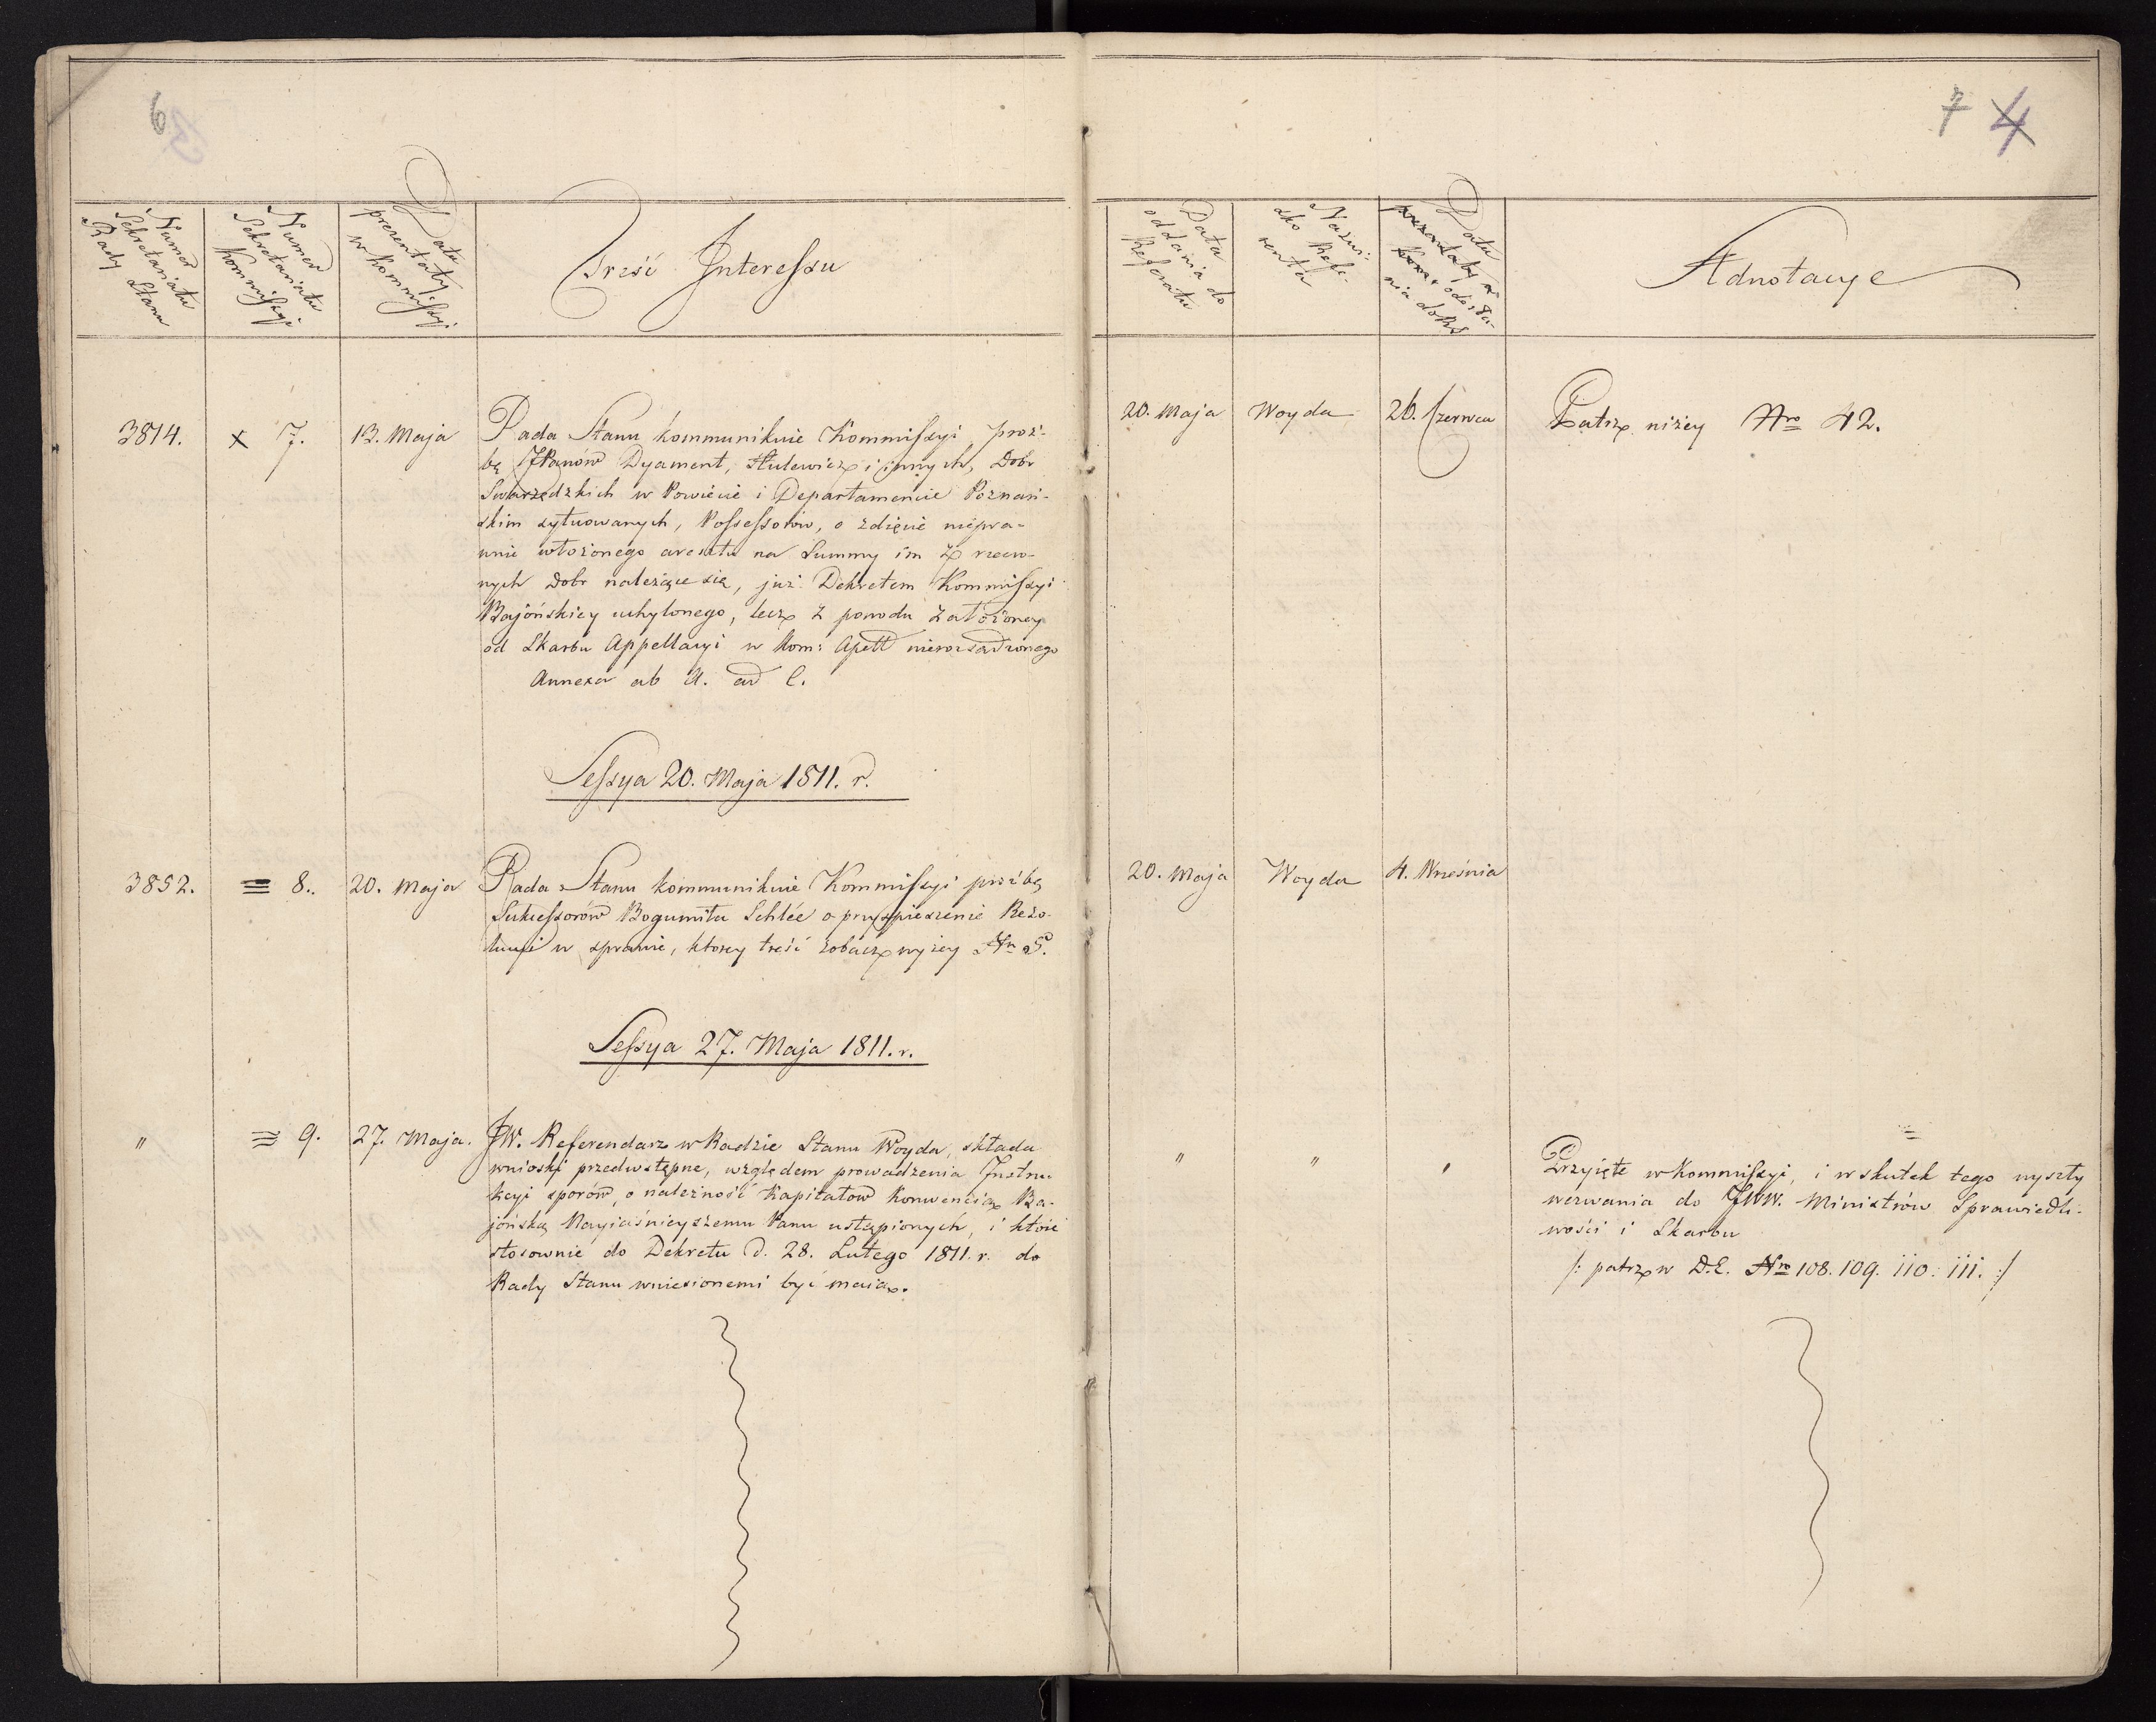 6
Numer Sekretariatu Rady Stanu
Numer Sekretariatu Kommissyi
Data prezentaty w Kommissyi
Treść Interessu
3814. x 7. 13. Maja Rada Stanu kommunikuie Kommissyi proź-
bę JPanów Dyament, i innych, Dobr
Swarzędzkich w Powiecie i Departamencie Poznań-
skim sytuowanych, Possessorów, o zdięcie niepra-
wnie włożonego aresztu na Summy im z rzeczo-
nych Dobr należące się, już Dekretem Kommissyi
Bajońskiey uchylonego, lecz z powodu założoney
od Skarbu Appellacyi w Kom: Apell nierozsądzonego
Annexa ab A. ad C.
Sessya 20. Maja 1811. r.
3852. = 8. 20. Maja Rada Stanu kommunikuie Kommissyi proźbę
Sukcessorów Bogumiła Schlée o przyspieszenie Rezo-
lucyi w sprawie, ktorey treść zobacz wyżey Nr 5.
Sessya 27. Maja 1811. r.
" = 9. 27. Maja. JW. Referendarz w Radzie Stanu Woyda, składa
wnioski przedwstępne, względem prowadzenia Instru-
kcyi sporów, o należność Kapitałow Konwencią Ba-
jońską Nayiaśnieyszemu Panu ustąpionych, i ktòre
stosownie do Dekretu d. 28. Lutego 1811. r. do
Rady Stanu wniesionemi być maią.
7 4
Data oddania do Referatu
Nazwi-
sko Refe-
renta
Data prezentaty w
Kom: odesła-
nia do RS
Adnotacye
20. Maja Woyda 26. Czerwca Patrz niżey Nro 42.
20. Maja Woyda 4. Września
" " " Przyięte w Kommissyi, i w skutek tego wyszły
wezwania do JWW. Ministrów Sprawiedli-
wości i Skarbu
/: patrz w D.E. Nro 108. 109. 110. 111. :/